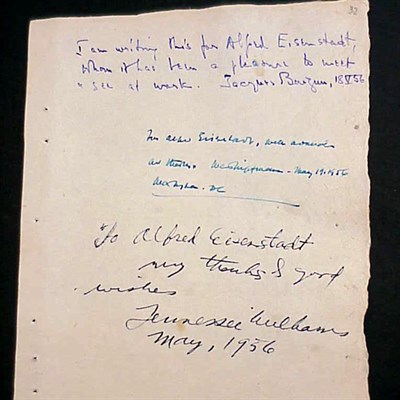 32
I am writing this for Alfred Eisenstadt,
whom it has been a pleasure to meet
& see at work. Jacques Barzun, 18 V 56
Eisenstadt, with
May 19. 1956
To Alfred Eisenstadt
my thanks & good
wishes
Tennessee Williams
May, 1956